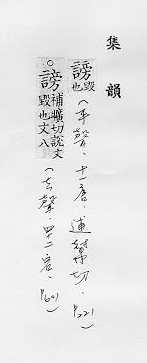 集韻
謗毀也(平聲.十一唐.逋 切.P221)
○謗補曠切說文毀也文八(去聲.四十二宕.P601)